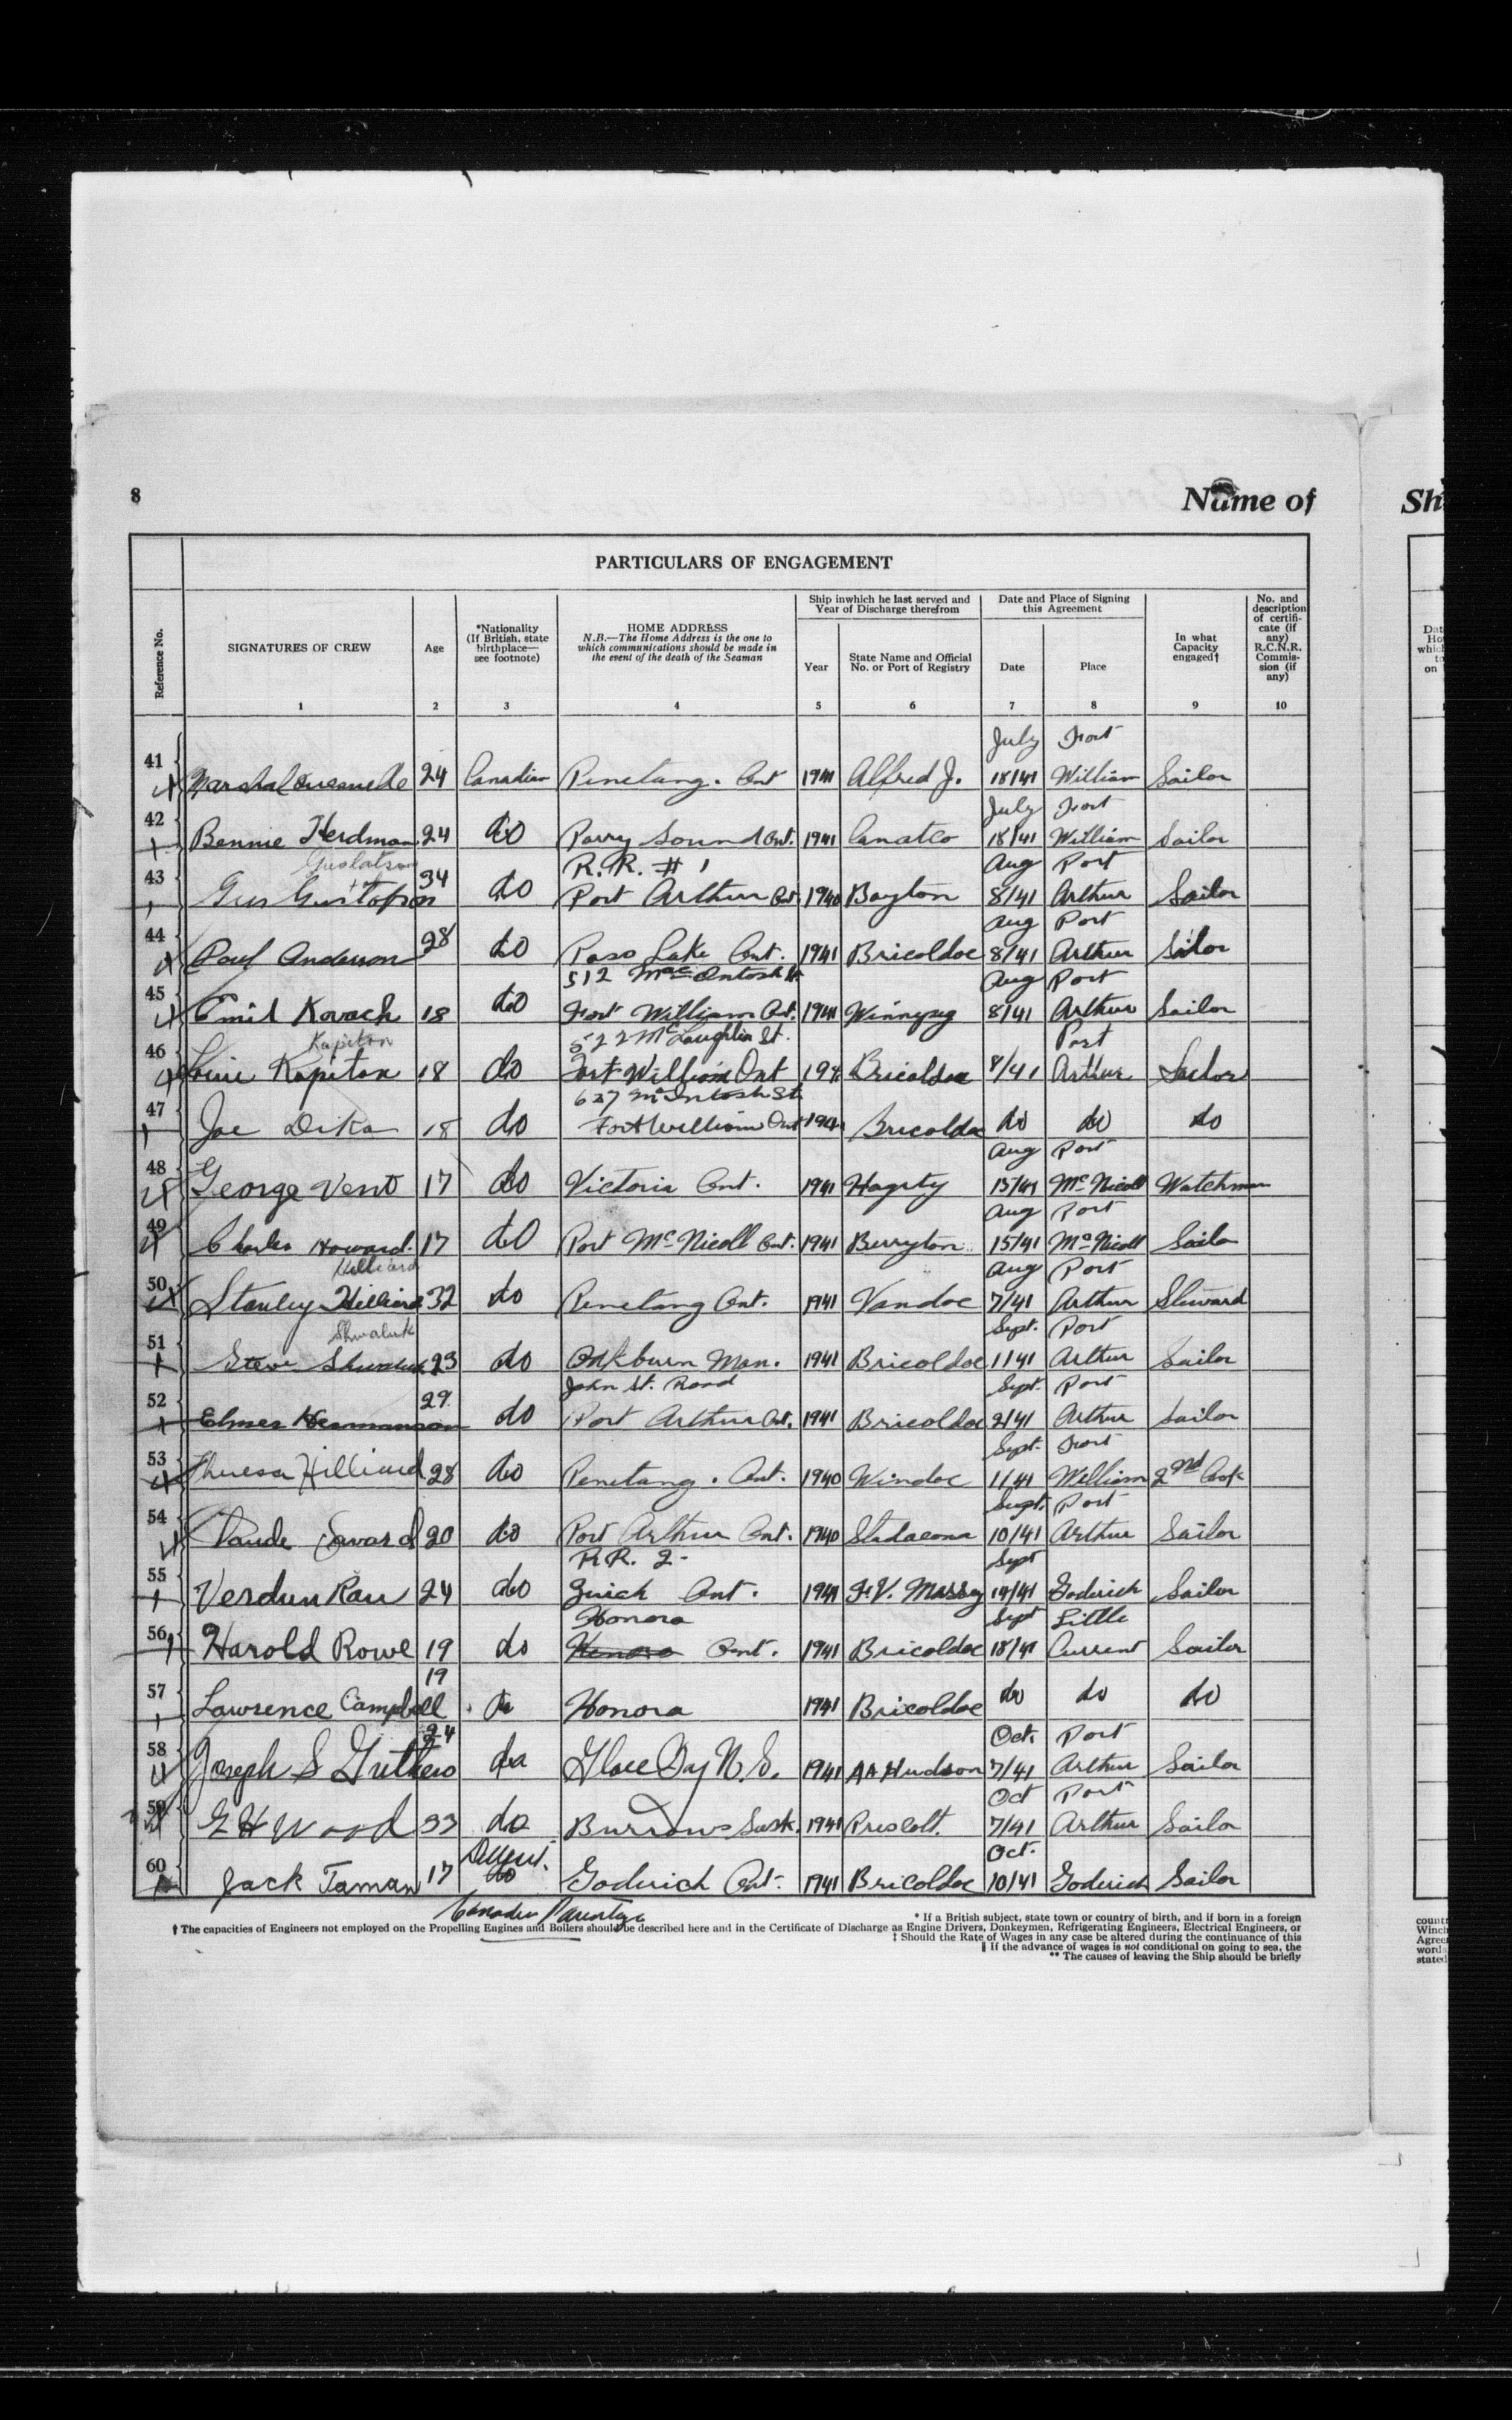 8
Name of
Sh
PARTICULARS OF ENGAGEMENT
Reference No.
SIGNATURES OF CREW
Age
*Nationality
(If British, state
birthplace—
see footnote)
HOME ADDRESS
N.B.—The Home Address is the one to
which communications should be made in
the event of the death of the Seaman
Ship inwhich he last served and
Year of Discharge therefrom
Year
State Name and Official
No. or Port of Registry
Date and Place of Signing
this Agreement
Date
Place
In what
Capacity
engaged†
No. and
description
of certifi-
cate (if
any)
R.C.N.R.
Commis-
sion (if
any)
1 2 3 4 5 6 7 8 9 10
July Fort
41 24 Canadian Penetang. Ont 1941 Alfred J. 18/41 William Sailor
July Fort
42 Bennie Herdman 24 do Parry Sound Ont. 1941 Canatco 18/41 William Sailor
Gustafson R.R. # 1 Aug Port
43 Gus Gustafson 34 do Port Arthur Ont. 1940 Bayton 8/41 Arthur Sailor
Aug Port
44 Paul Anderson 28 do Pass Lake Ont. 1941 Bricoldoc 8/41 Arthur Sailor
512 MacIntosh St Aug Port
45 Emil Kovach 18 do Fort William Ont. 1941 Winnipeg 8/41 Arthur Sailor
Kapiton 522 McLaughlin St. Port
46 Louie Kapiton 18 do Fort William Ont 194 Bricoldoc 8/41 Arthur Sailor
637 McIntosh St.
47 Joe Dika 18 do Fort William Ont 194 Bricoldoc do do do
Aug Port
48 George Vent 17 do Victoria Ont. 1941 Hagarty 15/41 McNicoll Watchman
Aug Port
49 Charles Howard. 17 do Port McNicoll Ont. 1941 Berryton 15/41 McNicoll Sailo
Hilliard Aug Port
50 Stanley Hilliard 32 do Penetang Ont. 1941 Vandoc 7/41 Arthur Steward
Shwaluk Sept. Port
51 Steve Shwaluk 23 do Oakburn Man. 1941 Bricoldoc 1/41 Arthur Sailor
John St. Road Sept. Port
52 Elmer Hermanson 29 do Port Arthur Ont. 1941 Bricoldoc 2/41 Arthur Sailor
Sept. Fort
53 Theresa Hilliard 28 do Penetang. Ont. 1940 Windoc 1/41 William 2nd Cook
Sept. Port
54 Claude Savard 20 do Port Arthur Ont. 1940 Stadacona 10/41 Arthur Sailor
R.R. 2- Sept
55 Verdun Rau 24 do Zurich Ont. 1941 F.V. Massey 14/41 Goderich Sailor
Honora Sept Little
56 Harold Rowe 19 do Ont. 1941 Bricoldoc 18/41 Current Sailor
57 Lawrence Campbell 19 do Honora 1941 Bricoldoc do do do
Oct. Port
58 Joseph S 24 do Glace Bay N.S. 1941 AA Hudson 7/41 Arthur Sailor
Oct Port
59 E H Wood 33 do Burrows Sask. 1941 Prescott. 7/41 Arthur Sailor
Oct.
60 Jack Taman 17 do Goderich Ont. 1941 Bricoldoc 10/41 Goderich Sailor
Canadian Parentage
* If a British subject, state town or country of birth, and if born in a foreign
† The capacities of Engineers not employed on the Propelling Engines and Boilers should be described here and in the Certificate of Discharge as Engine Drivers, Donkeymen, Refrigerating Engineers, Electrical Engineers, or
‡ Should the Rate of Wages in any case be altered during the continuance of this
‖ If the advance of wages is not conditional on going to sea, the
** The causes of leaving the Ship should be briefly
Dat
Ho
which
to
on
count
Winch
Agree
words
stated